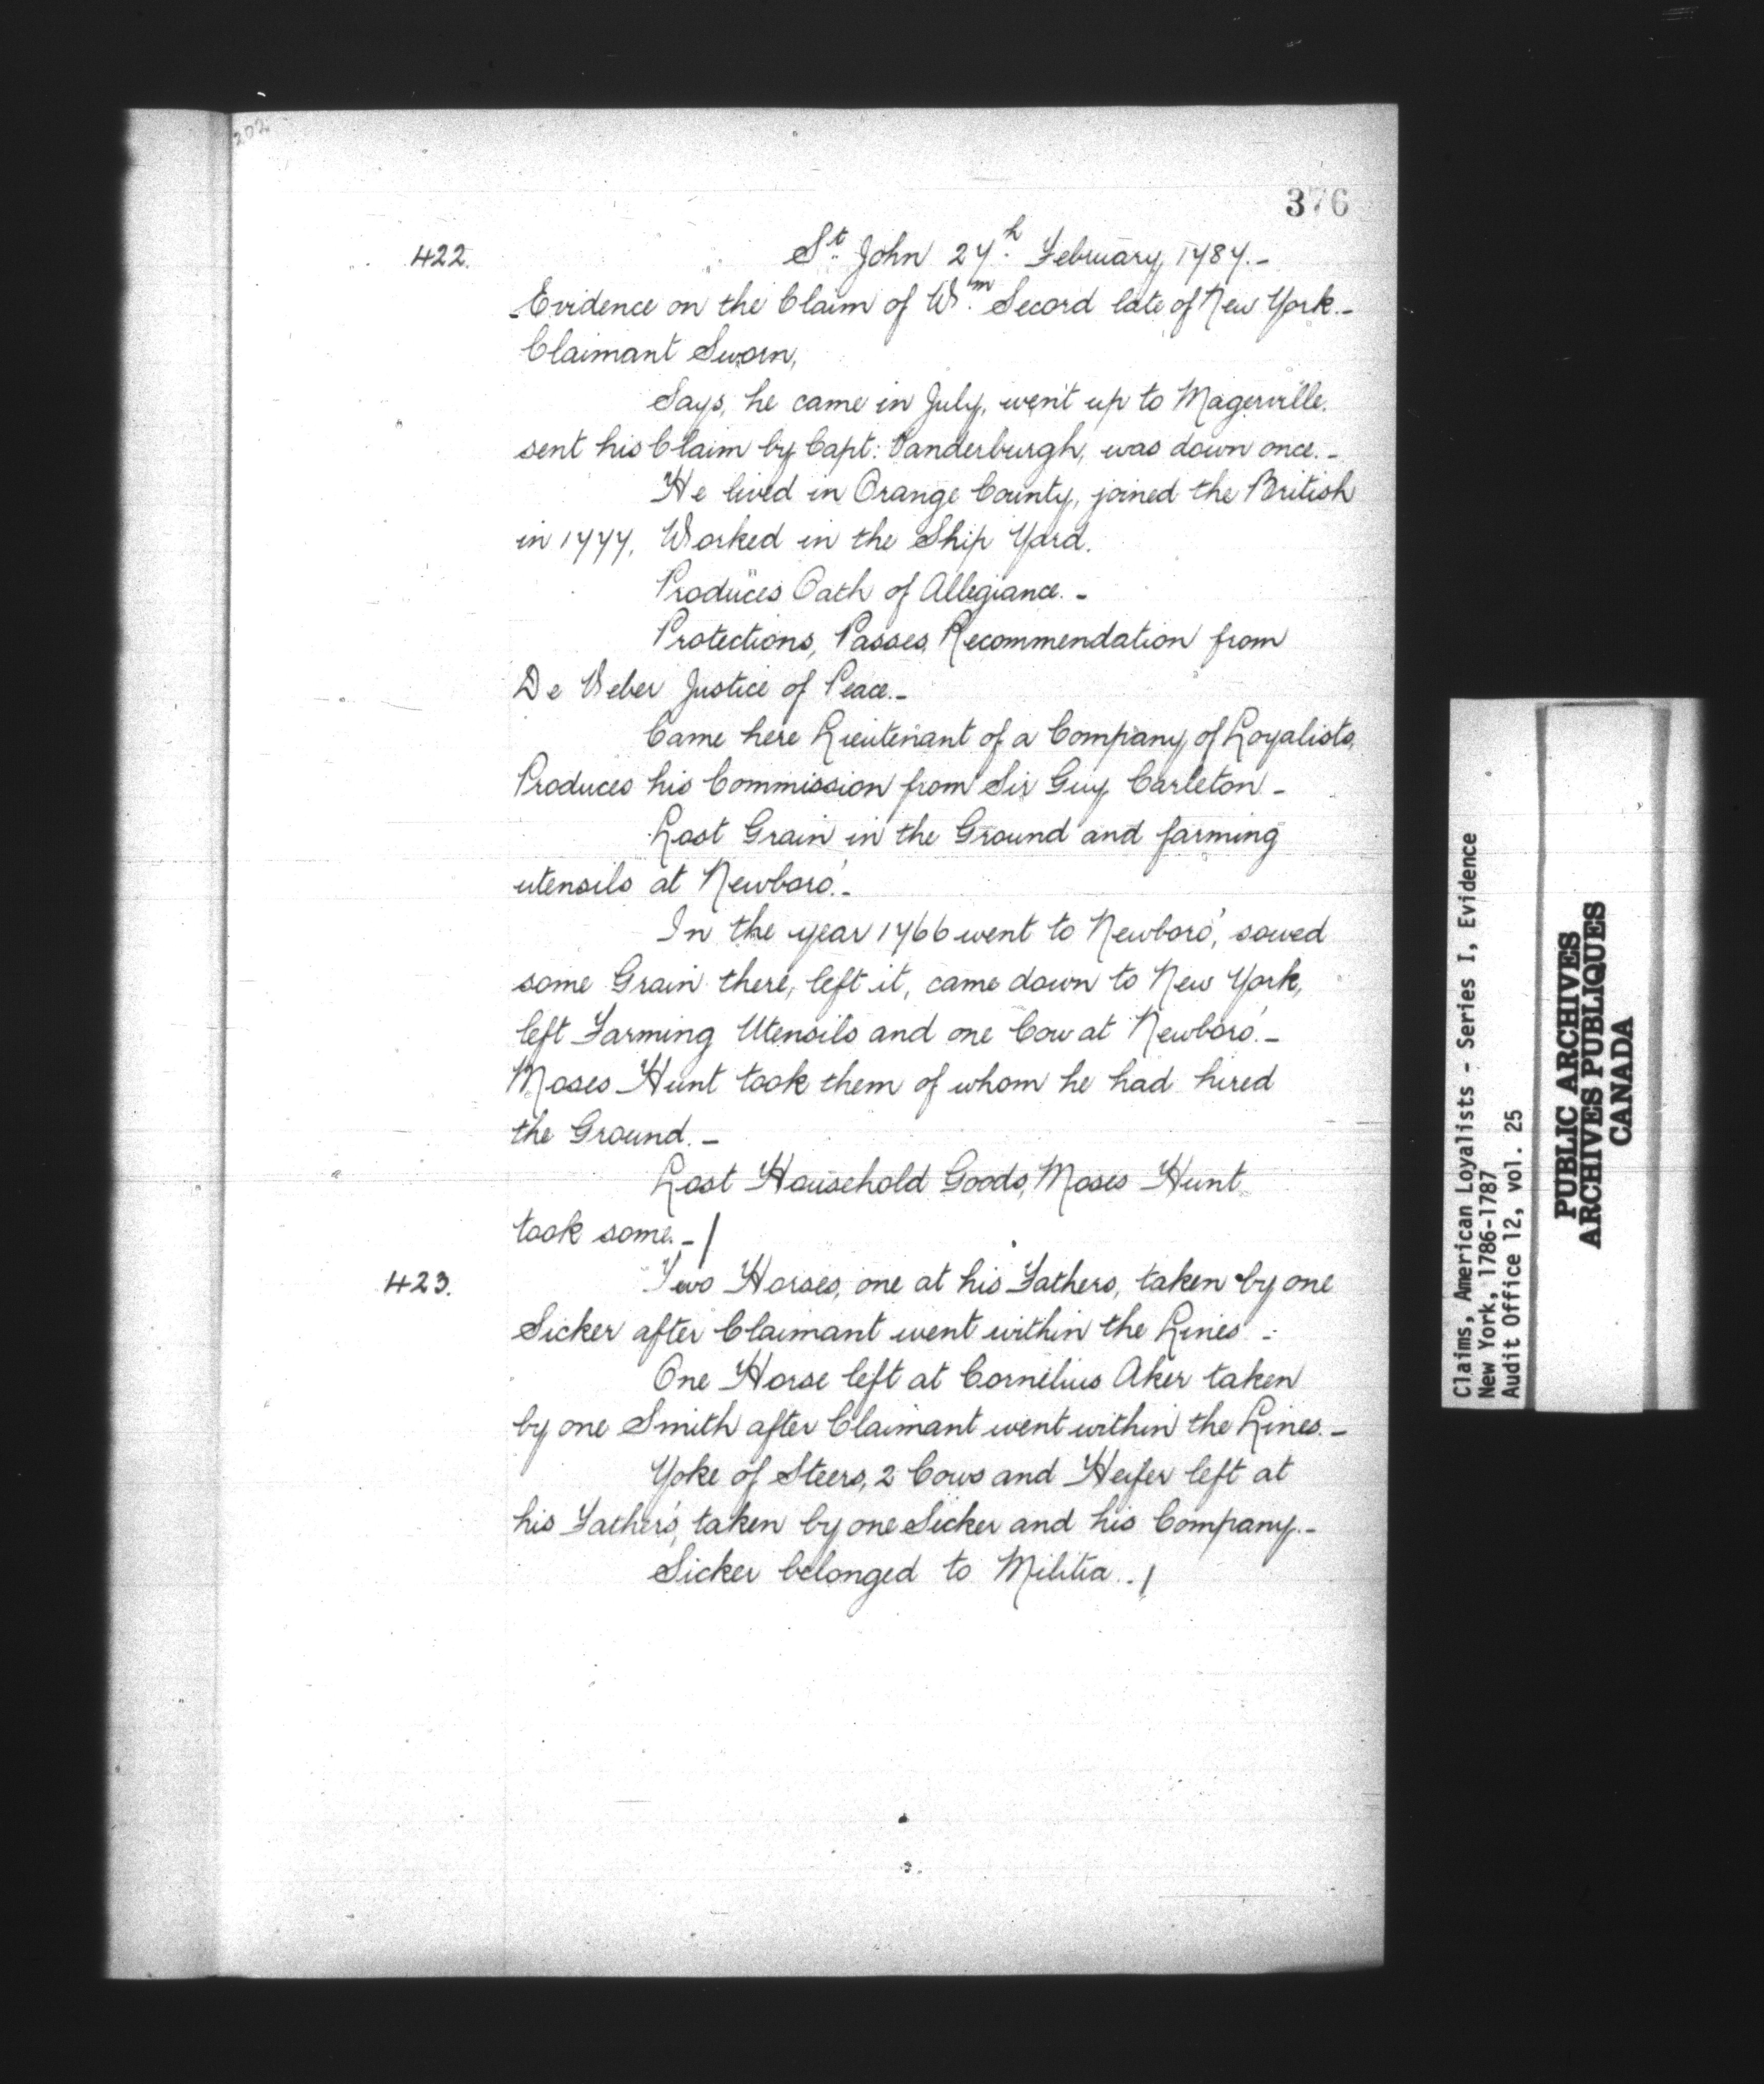 202
376
422.
St. John 27th. February 1787.-
Evidence on the Claim of Wm. Secord late of New York.-
Claimant Sworn,
Says, he came in July, went up to Magerville.
sent his Claim by Capt: Vanderburgh, was down once.-
He lived in Orange County, joined the British
in 1777, Worked in the Ship Yard.
Produces Oath of Allegiance.-
Protections, Passes, Recommendation from
De Veber Justice of Peace.-
Came here Lieutenant of a Company of Loyalists,
Produces his Commission from Sir Guy Carleton-
Lost Grain in the Ground and farming
utensils at Newboro'.-
In the year 1766 went to Newboro', sowed
some Grain there, left it, came down to New York,
left Farming Utensils and one Cow at Newboro'.-
Moses Hunt took them of whom he had hired
the Ground.-
Lost Household Goods, Moses Hunt
took some.-/
423.
Two Horses, one at his Fathers, taken by one
Sicker after Claimant went within the Lines-
One Horse left at Cornelius Aker taken
by one Smith after Claimant went within the Lines.-
Yoke of Steers, 2 Cows and Heifer left at
his Father's, taken by one Sicker and his Company.-
Sicker belonged to Militia.-/
Claims, American Loyalists - Series I, Evidence
New York, 1786-1787
Audit Office 12, vol. 25
PUBLIC ARCHIVES
ARCHIVES PUBLIQUES
CANADA